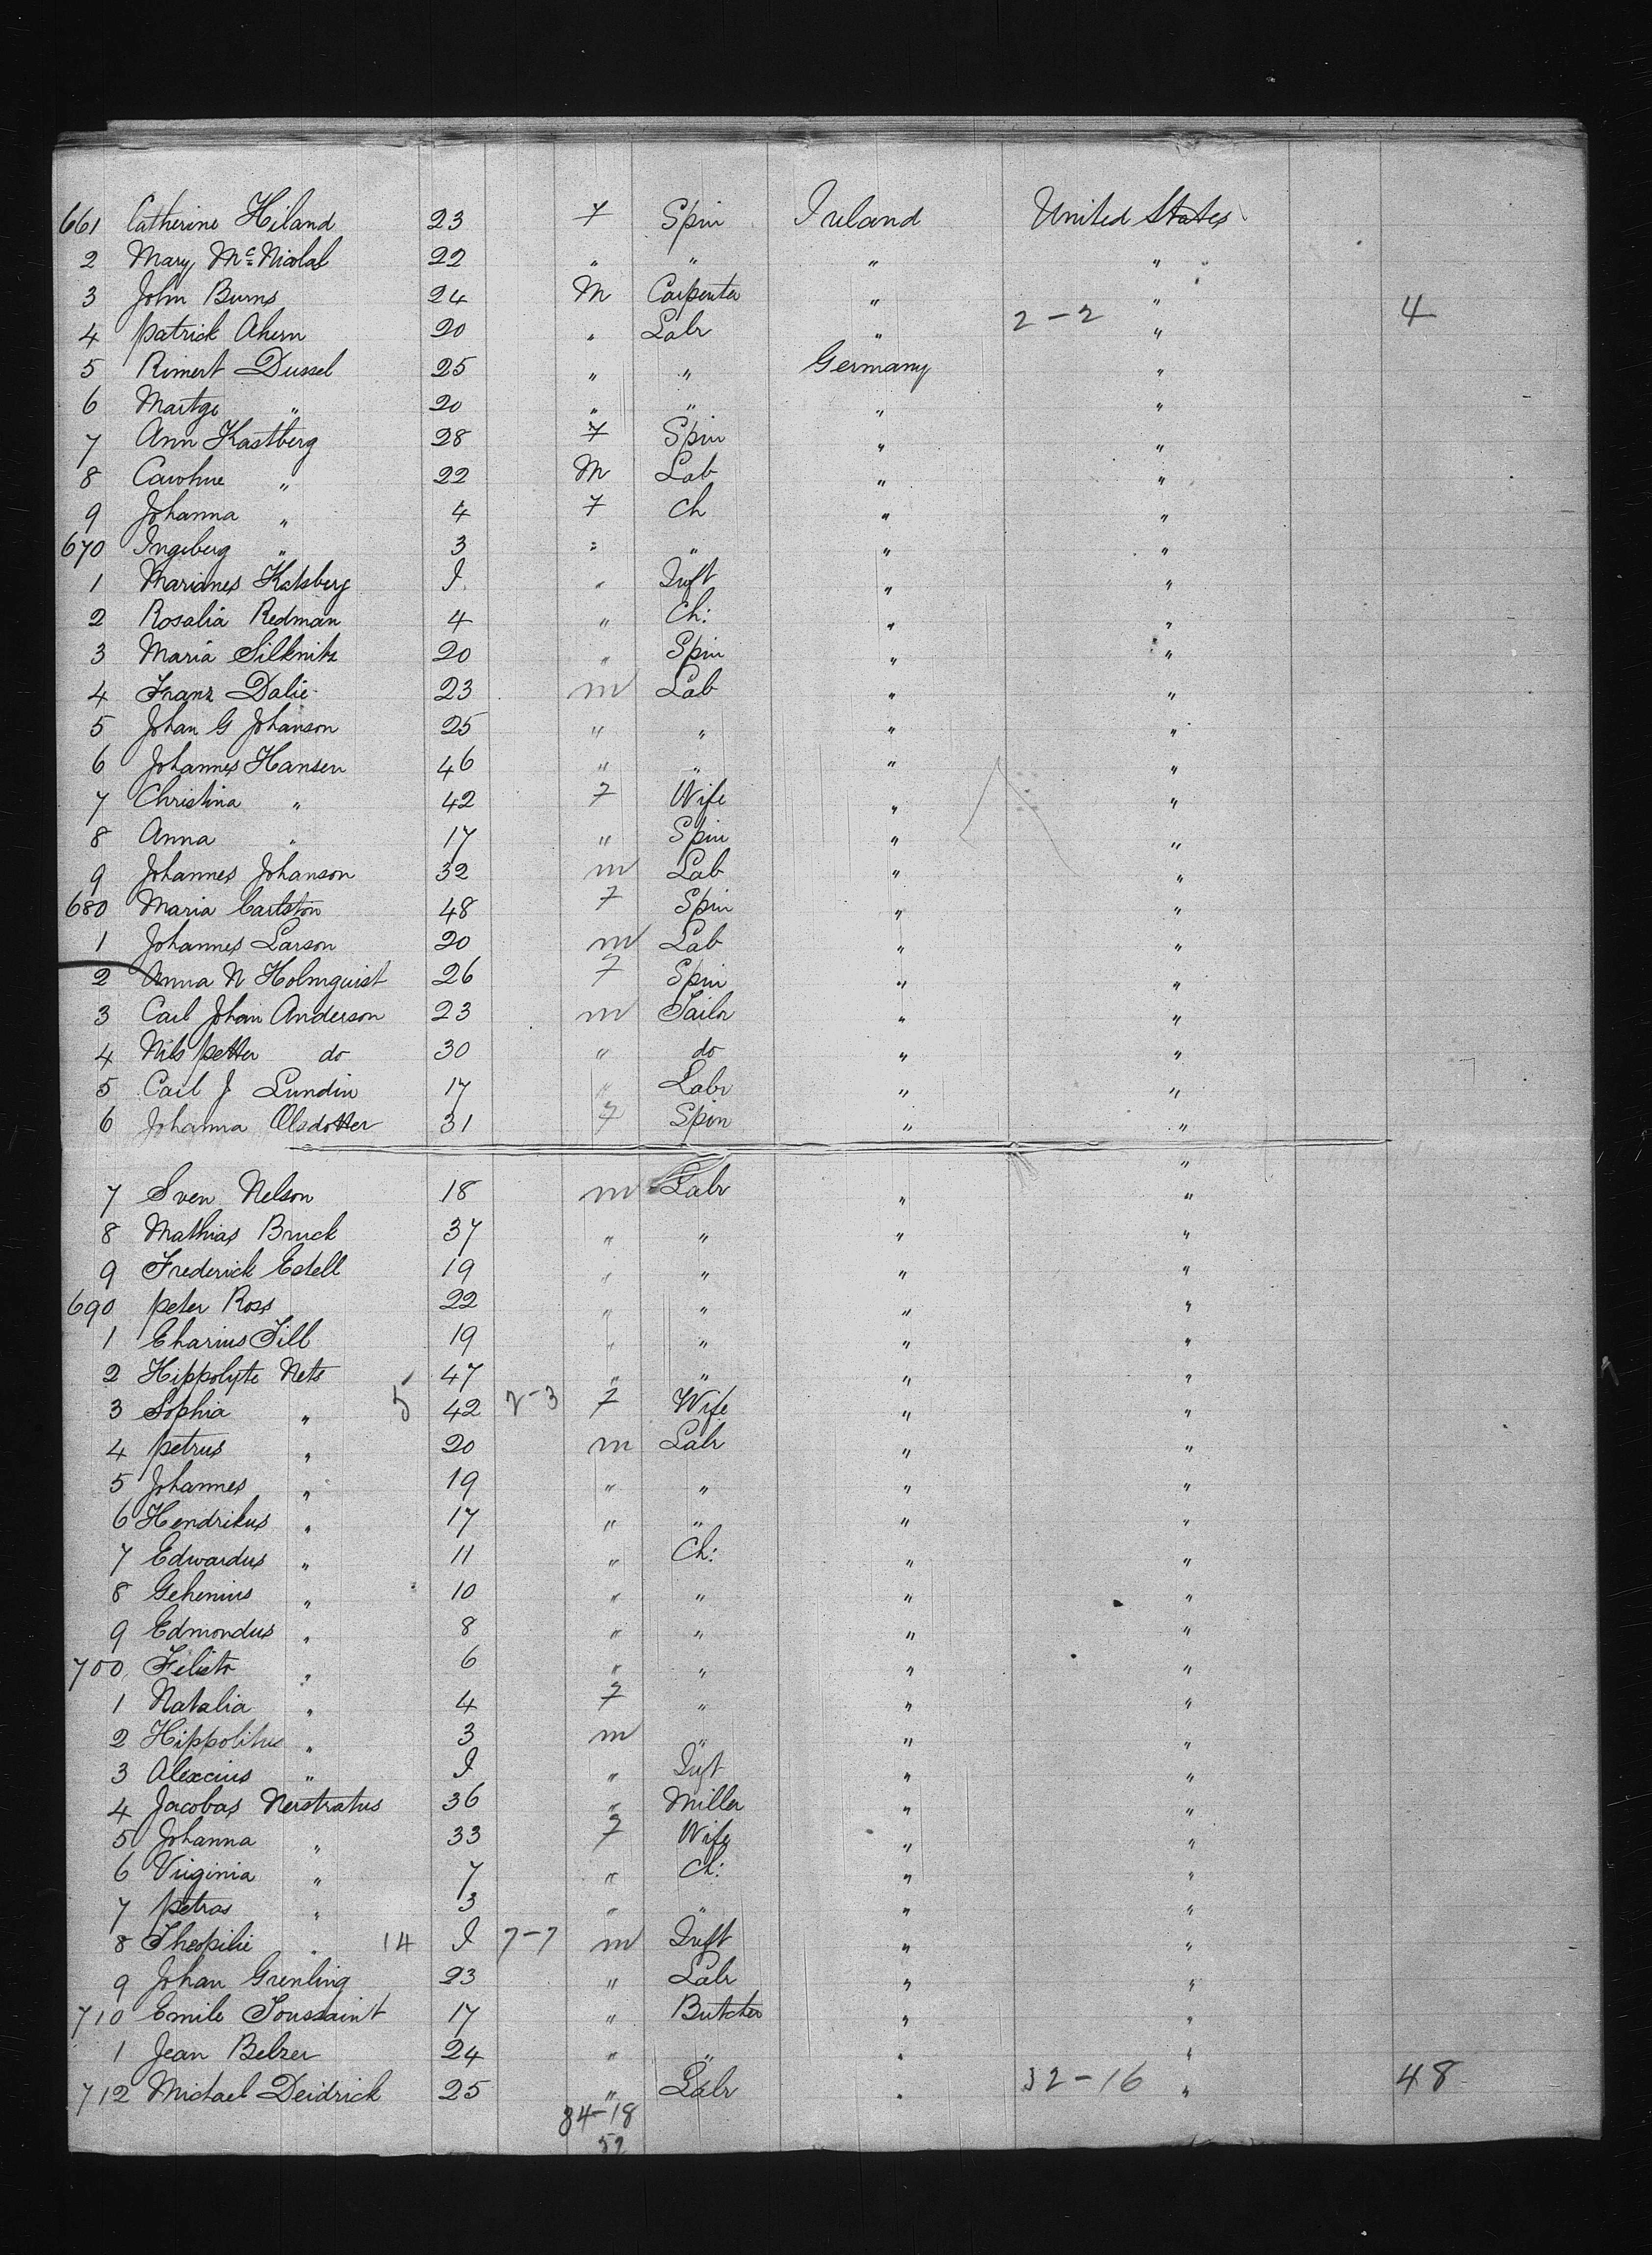 661 Catherine Hiland 23 F Spin Ireland United States
2 Mary McNicolal 22 " " " "
3 John Burns 24 M Carpenter " "
4 Patrick Ahern 20 " Labr " 2-2 " 4
5 Rimert Dussel 25 " " Germany "
6 Martge " 20 " " " "
7 Ann Kastberg 28 F Spin " "
8 Carohne " 22 M Lab " "
9 Johanna " 4 F Ch " "
670 Ingeberg " 3 " " " "
1 Marianes Katsberg I " Inft " "
2 Rosalia Redman 4 " Ch: " "
3 Maria Silknitz 20 " Spin " "
4 Franz Dalie 23 m Lab " "
5 Johan G Johanson 25 " " " "
6 Johannes Hansen 46 " " " "
7 Christina " 42 F Wife " "
8 Anna " 17 " Spin " "
9 Johannes Johanson 32 m Lab " "
680 Maria Carlston 48 F Spin " "
1 Johannes Larson 20 m Lab " "
2 Anna N Holmquist 26 F Spin " "
3 Carl Johan Anderson 23 m Tailor " "
4 Nils Petter do 30 " do " "
5 Carl J Lundin 17 " Labr " "
6 Johanna Olsdotter 31 F Spin " "
"
7 Sven Nelson 18 m Labr " "
8 Mathias Bruck 37 " " " "
9 Frederick Estell 19 " " " "
690 Peter Ross 22 " " " "
1 Eharius Till 19 " " " "
2 Hippolyte Nets 47 " " " "
3 Sophia " 5 42 2-3 F Wife " "
4 Petrus " 20 m Labr " "
5 Johannes " 19 " " " "
6 Hendrikus " 17 " " " "
7 Edwardus " 11 " Ch: " "
8 Gehenius " 10 " " " "
9 Edmondus " 8 " " " "
700 Felisto " 6 " " " "
1 Natalia " 4 F " " "
2 Hippolitus " 3 m " " "
3 Alexcius " I " Inft " "
4 Jacobas Nerstratus 36 " Miller " "
5 Johanna " 33 F Wife " "
6 Virginia " 7 " Ch: " "
7 Petras " 3 " " " "
8 Theopilie " 14 I 7-7 m Inft " "
9 Johan Grenling 23 " Labr " "
710 Emile Toussaint 17 " Butcher " "
1 Jean Belzer 24 " " " "
712 Michael Deidrick 25 " Labr " 32-16 " 48
34-18
52